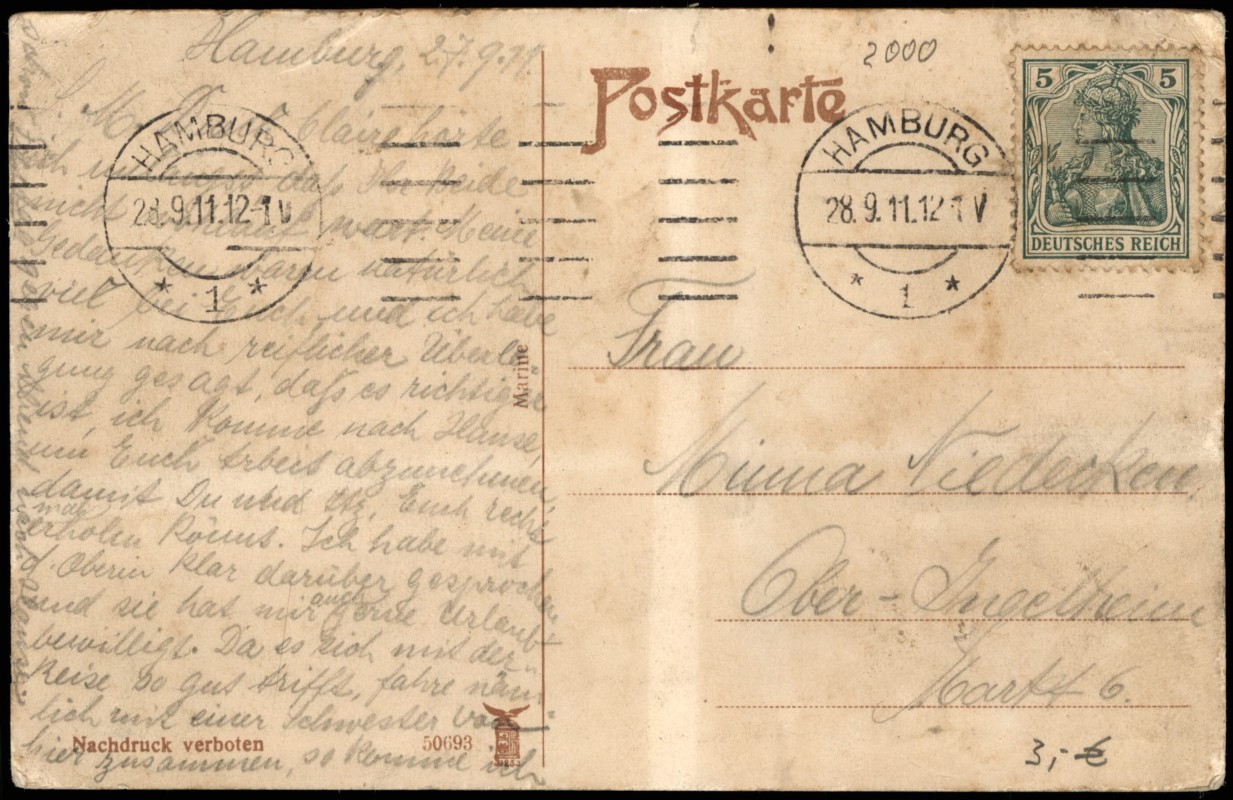 Hamburg, 27.9.11.
Claire harte
ich daß Ihr beide
nicht wart. Meine
Gedanken waren natürlich
viel bei Euch, und ich habe
mir nach reiflicher Überle-
gung gesagt, daß es richtiger
ist, ich komme nach Hause,
um Euch Arbeit abzunehmen,
damit Du und Euch recht
mal
erholen könnt. Ich habe mit
d. Oberin klar darüber gesprochen
und sie hat mir auch gerne Urlaub
bewilligt. Da es sich mit der
Reise so gut trifft, fahre näm-
lich mit einer Schwester von
hier zusammen, so komme ich
Nachdruck verboten
50693
Marine
Postkarte
2000
HAMBURG
28.9.11.12-1 V
* 1 *
HAMBURG
28.9.11.12-1 V
* 1 *
5 5
DEUTSCHES REICH
Frau
Minna Niedecken
Ober-Ingelheim
Markt 6.
3,- €